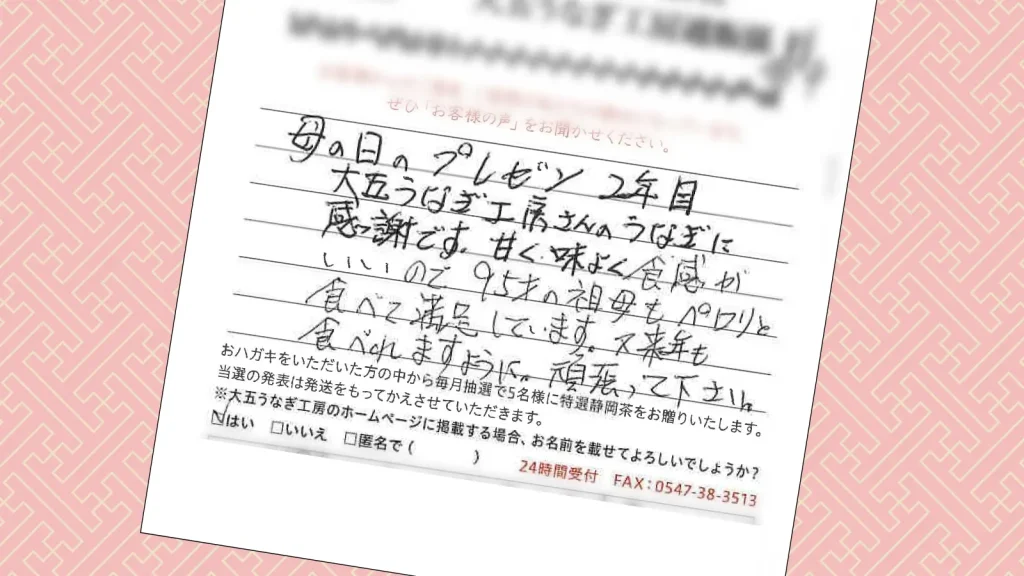 大五うなぎ工房
ぜひ「お客様の声」をお聞かせください。
母の日のプレゼン 2年目
大五うなぎ工房さんのうなぎに
感謝です。甘く、味よく食感が
いいので 95才の祖母もペロリと
食べて満足しています。又来年も
食べれますように。頑張って下さい。
おハガキをいただいた方の中から毎月抽選で5名様に特選静岡茶をお贈りいたします。
当選の発表は発送をもってかえさせていただきます。
※大五うなぎ工房のホームページに掲載する場合、お名前を載せてよろしいでしょうか?
☑はい □いいえ □匿名で( )
24時間受付 FAX:0547-38-3513